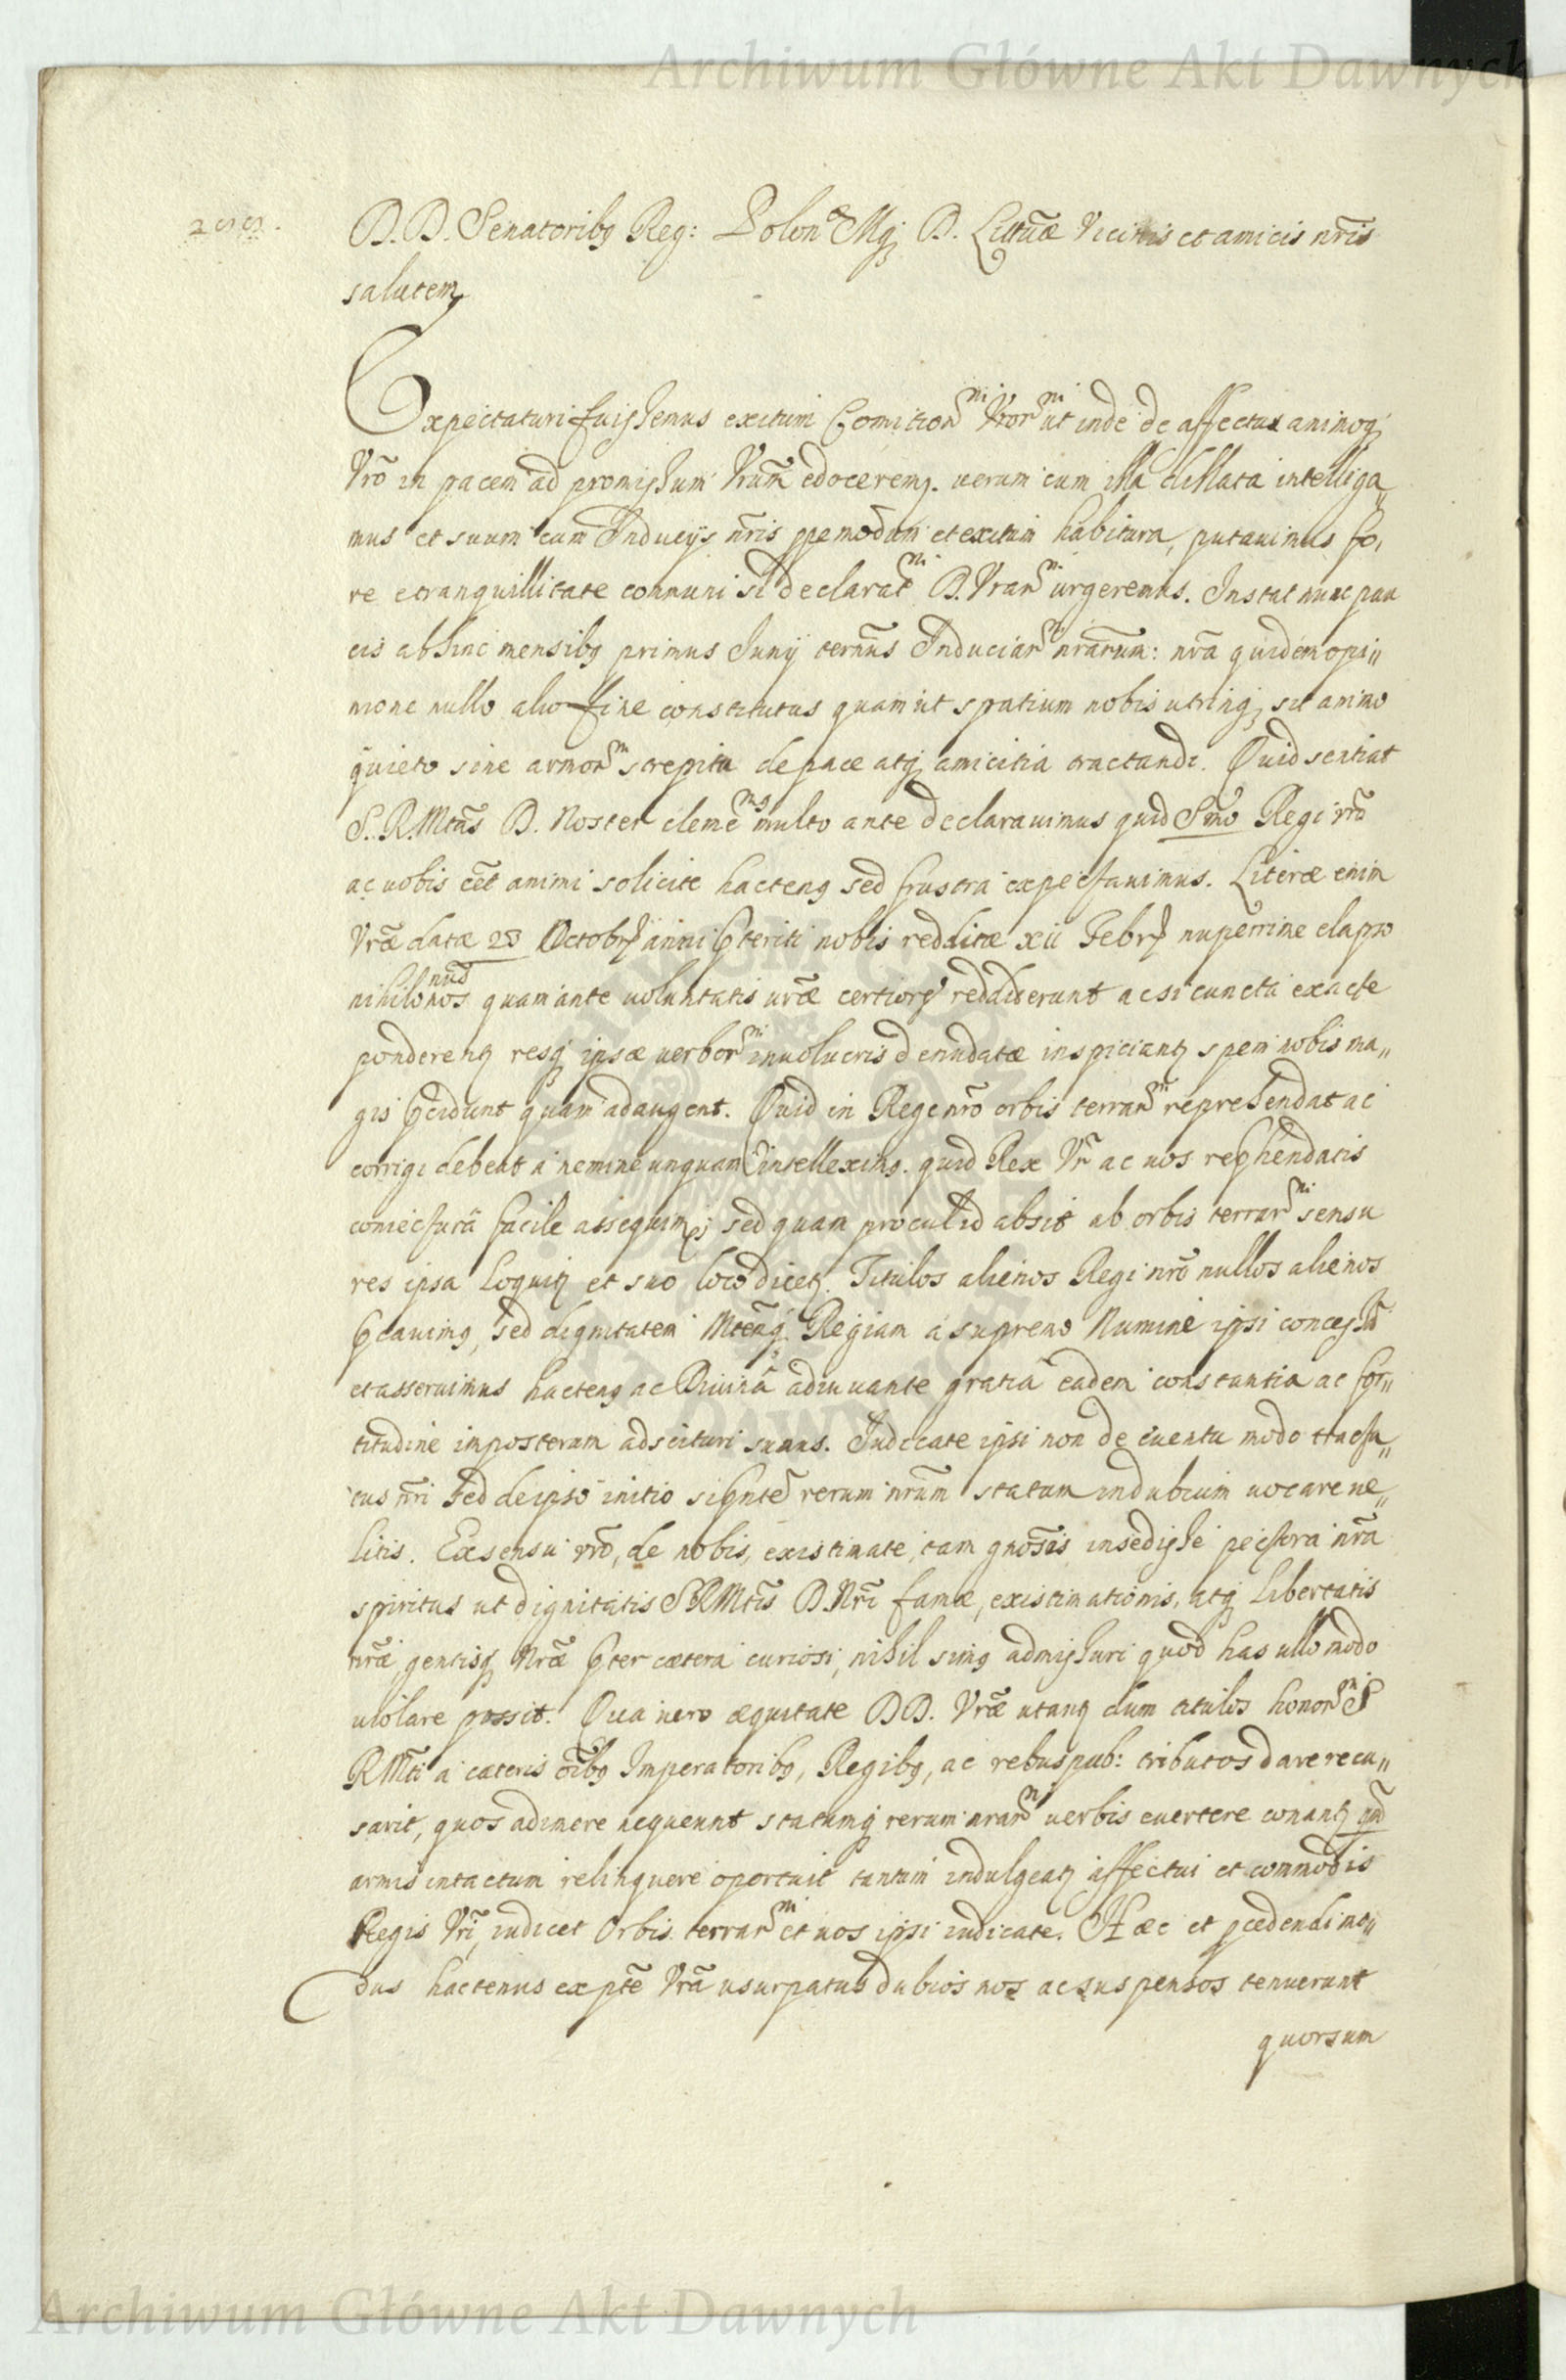 Archiwum Główne Akt Dawnych
255.
D. D. Senatoribꝫ Reg: Polon. et Mg; D. Littūæ Vicinis et amicis nr̄is
salutem
Expectaturi fuissemus exitum Comitior^m Vror^m ut inde de affectu animoq;
Vrō in pacem ad promissum Vrūm edoceremꝫ. uerum cum illa dillata intelliga„
mus et suum cum Inducijs nr̄is ppemodum et exitum habitura, putauimus fo„
re e tranquillitate communi si declarat^m D. Vrar^m urgeremus. Instat nunc pau
cis abhinc mensibꝫ primus Junij termn̄us Induciar^m nrārum: nrā quidem opi„
nione nullo alio fine constitutus quam ut spatium nobis utrinq; sit animo
quieto sine armor^m strepitu de pace atq; amicitia tractandi. Quid sentiat
S. R. Mtās D. Noster cleme^ns multo ante declarauimus quid Smō Regi vrō
ac uobis eēt animi solicite hactenꝫ sed frustra expectauimus. Literæ enim
Vrǣ datæ 28 Octobr anni pteriti nobis redditæ xii Febr nuperrime elapso
nihilo nos quam ante uoluntatis urǣ certiores reddiderunt ac si cuncta exacte
ponderentꝫ resq; ipsæ uerbor^m inuolucris denudatæ inspiciantꝫ spem nobis ma„
gis pcidunt quam adaugent. Quid in Rege nrō orbis terrar^m reprehendat ac
corrigi debeat a nemine unquam intelleximꝫ. quid Rex Vr̄ ac uos rephendatis
coniecturā facile assequimꝫ; sed quam procul id absit ab orbis terrar^m sensu
res ipsa loquitꝫ et suo loco dicetꝫ. Titulos alienos Regi nrō nullos alienos
pcauimꝫ, sed dignitatem Mtēmq; Regiam a supremo Numine ipsi concessā
et asseruimus hactenꝫ ac Diuinā adiuuante gratiā eadem constantia ac for„
titudine imposterum adscituri sumus. Iudicate ipsi non de euentu modo tracta„
tus nr̄i sed de ipso initio sipntē rerum nrārum statum in dubium uocare ue„
litis. Ex sensu vrō, de nobis, existimate, tam gnōsis insedisse pectora nrā
spiritus ut dignitatis SRMtis D. Nr̄i famæ, existimationis, atq; Libertatis
nrǣ, gentisq; Nrǣ pter cætera curiosi, nihil simꝫ admissuri quod has ullo modo
uiolare possit. Qua uero æquitate DD. Vrǣ utantꝫ dum titulos honor^m S
RMti a cæteris oībꝫ Imperatoribꝫ, Regibꝫ, ac rebuspub: tributos dare recu„
sarit, quos adimere nequeunt statumq; rerum nrar^m uerbis euertere conantꝫ qm̄
armis intactum relinquere oportuit tantum indulgeatꝫ affectui et commodis
Regis Vr̄i, iudicet Orbis terrar^m et uos ipsi iudicate. Hæc et pcedendi mo„
dus hactenus ex ptē Vrā usurpatus dubios nos ac suspensos tenuerunt
quorsum
Archiwum Główne Akt Dawnych